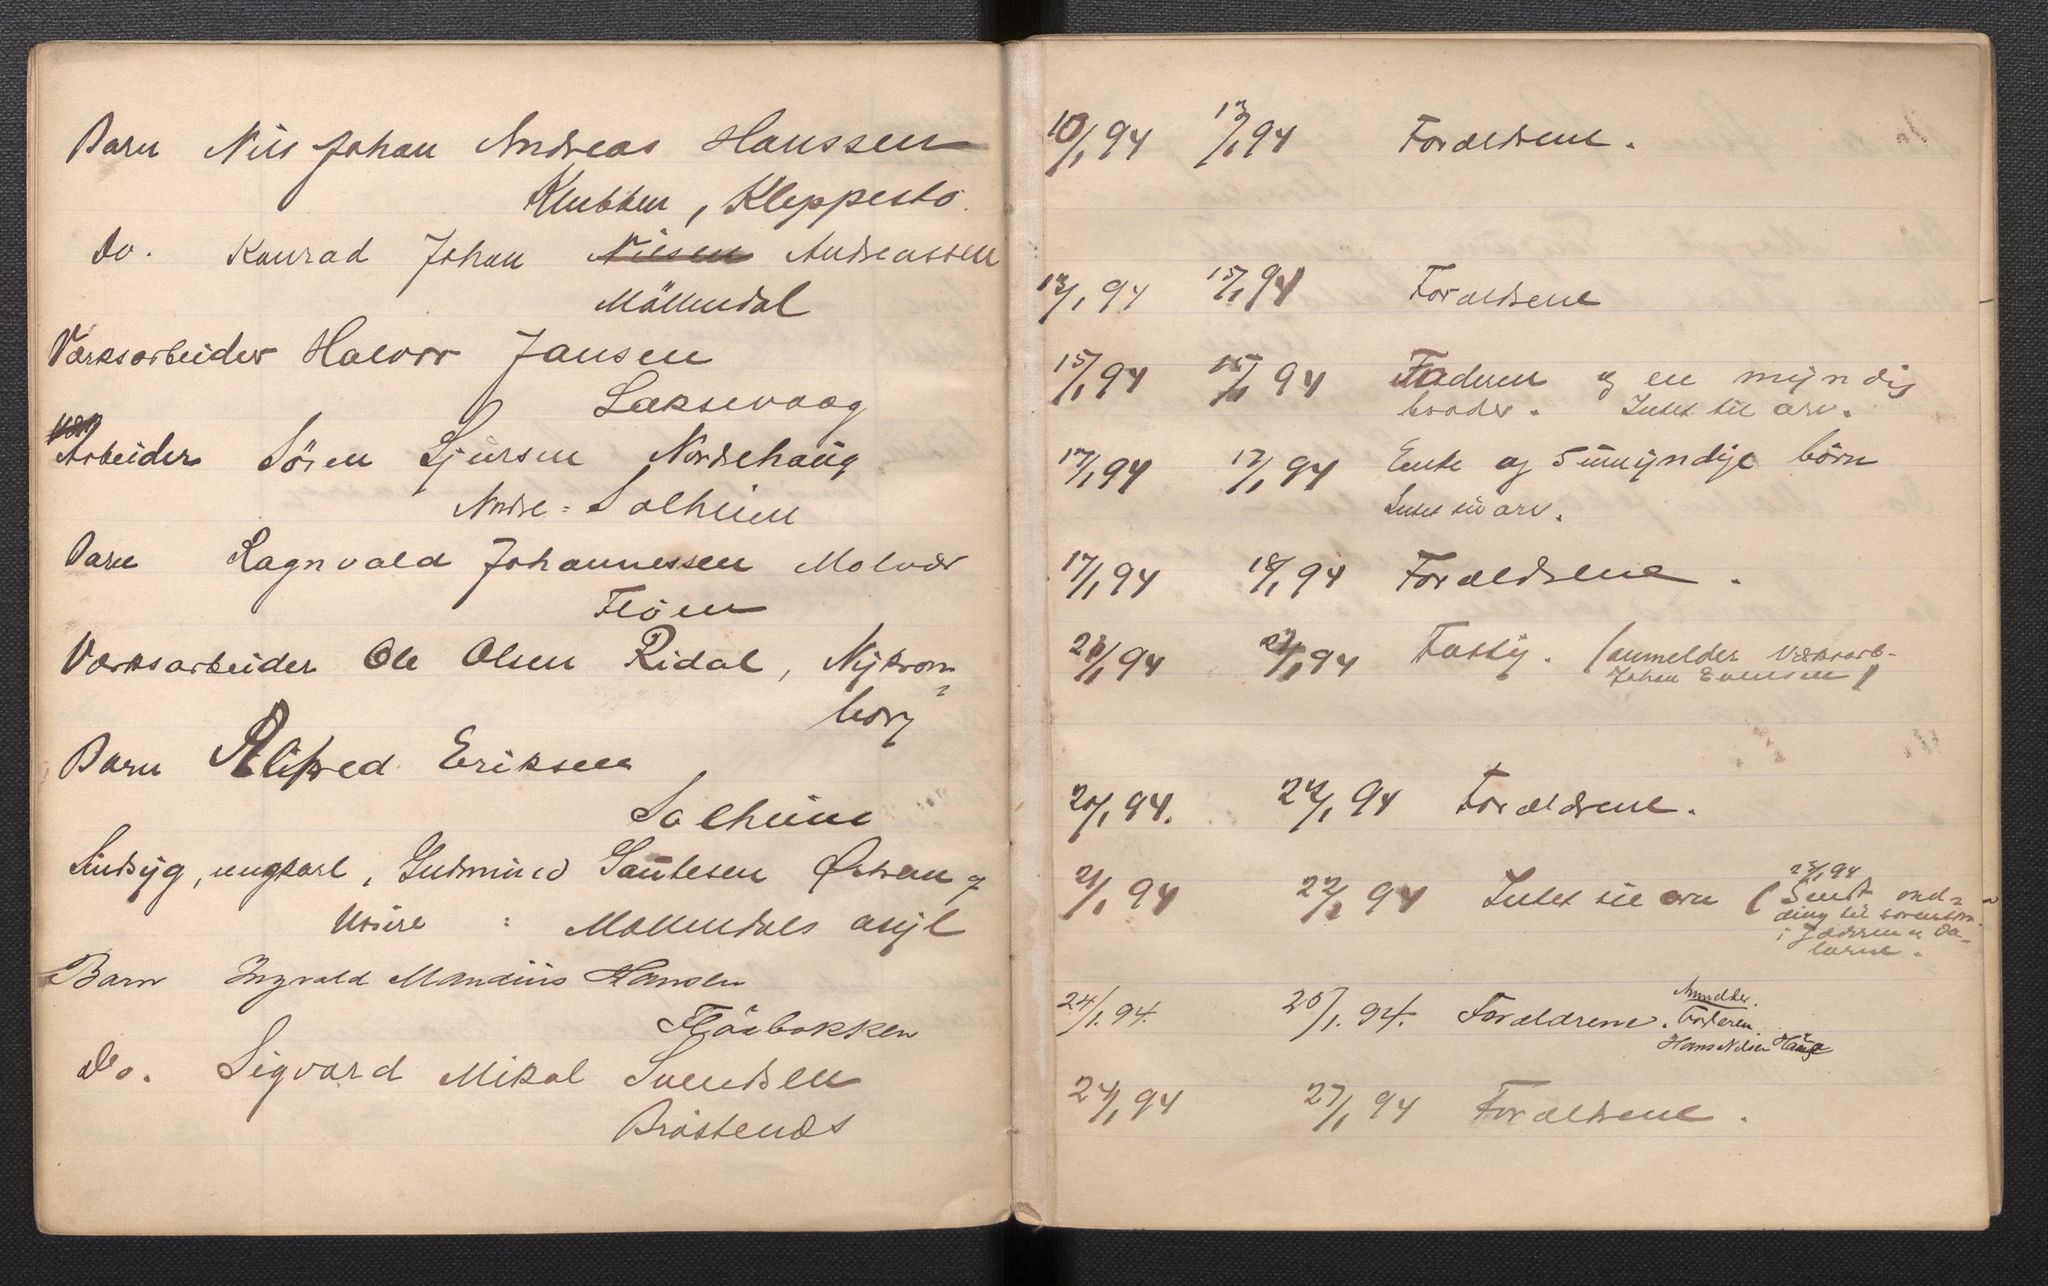 Barn Nils Johan Andreas Hanssen
Klubben, Kleppestø.
Do. Konrad Johan Nilsen Andreassen
Möllendal
Værksarbeider Halvor Jansen
Laksevaag
Arbeider Sören Sjursen Nordrehaug
Nedre = Solheim
Barn Ragnvald Johannessen Molvær
Fløen
Værksarbeider Ole Olsen Ridal, Nykron
borg
Barn Alfred Eriksen
Solheim
Sindsyg, ungkarl, Gudmund Gautesen Østrem
: Möllendals asyl
Barn Ingvald Mandius Hansen
Flöibakken
Do. Sigvard Mikal Svendsen
Bröstenæs
10/1 94 13/1 94 Forældrene.
13/1 94 15/1 94 Forældrene
15/1 94 15/1 94 Faderen og en myndig
broder. Intet til arv.
17/1 94 17/1 94 Enke og 5 umyndige børn
Intet til arv.
17/1 94 18/1 94 Forældrene.
20/1 94 22/1 94 Fattig. (anmelder Værksarb-
Johan Evensen)
20/1 94. 22/1 94 Forældrene.
21/1 94 22/1 94 Intet til arv (23/1 94
Sendt med=
ding til sorenskri
i Jæderen og Da-
larne.
24/1. 94. 25/1. 94. Forældrene. Anmelder.
Faderen.
Hans Nilsen Hauge
24/1 94 27/1 94 Forældrene.